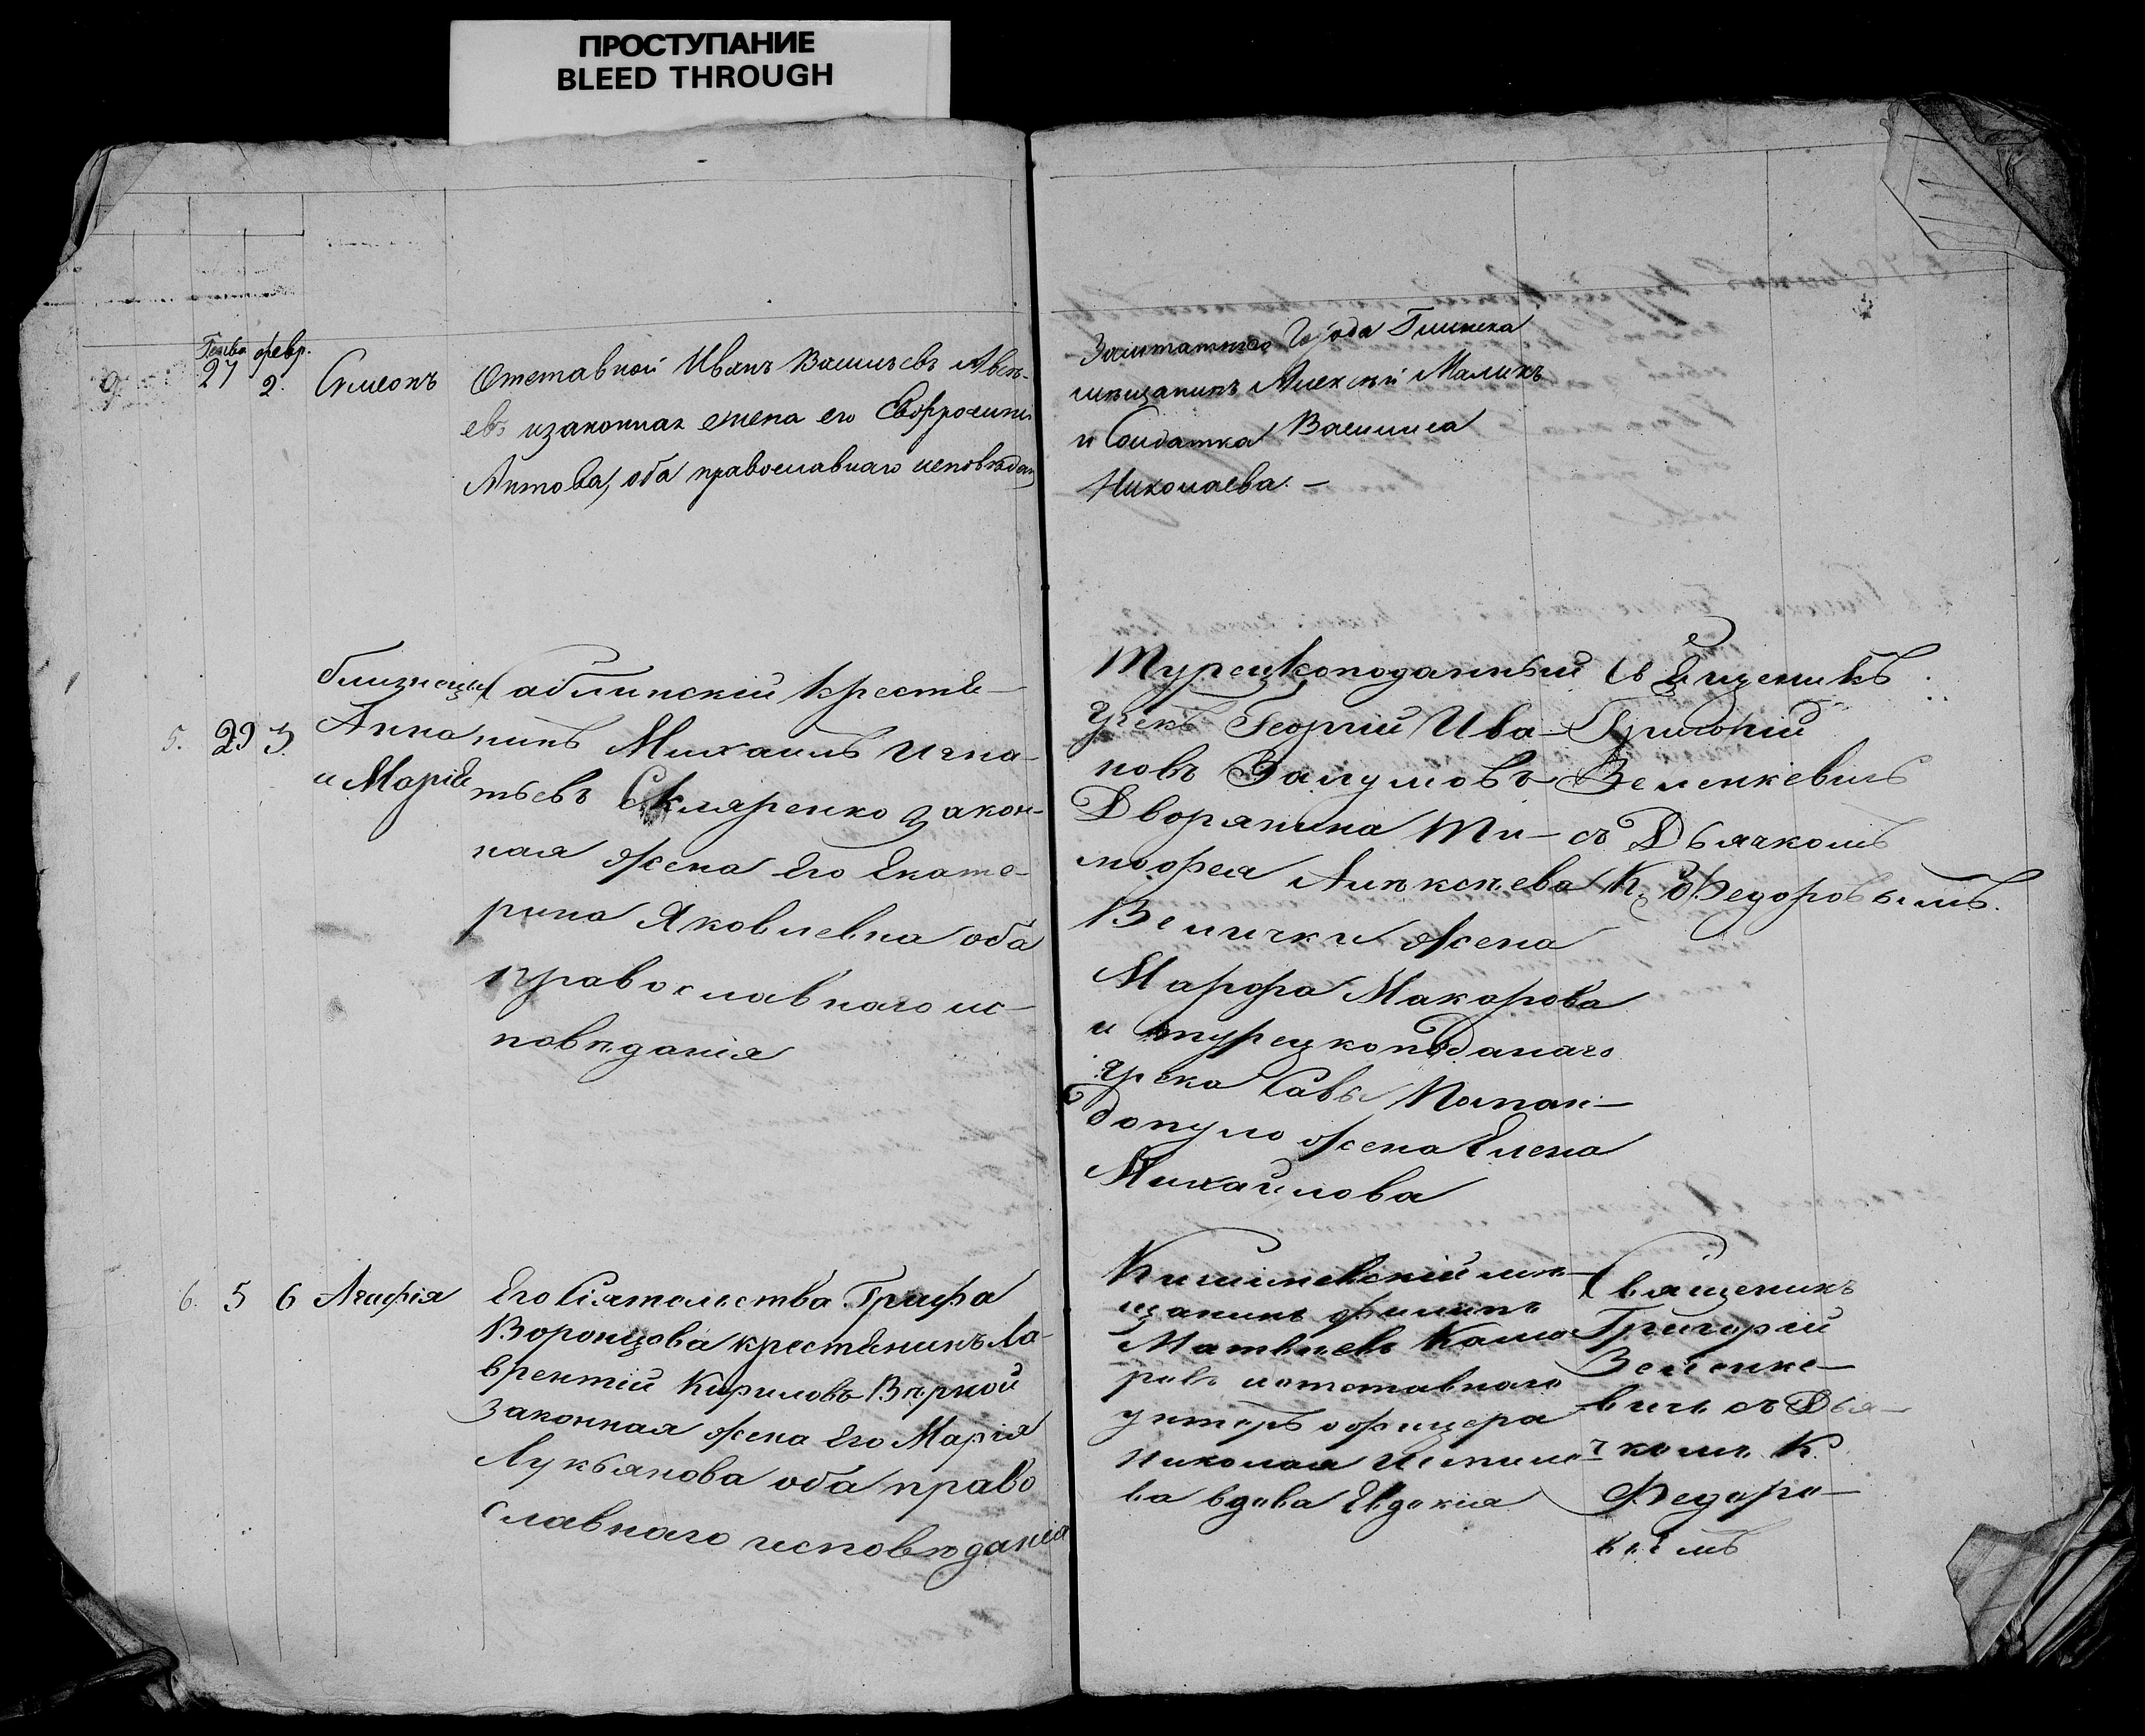 ПРОСТУПАНИЕ
BLEED THROUGH
Генва февр.
9. 27 2. Симеонъ
Отставной Иванъ Васильевъ
евъ изаконная жена его Евфросинiя
оба православнаго исповѣдан
Заштатнаго Города Глинска
мѣщанинъ Алексѣй Маликъ
и Солдатка Василиса
Николаева. –
5. 29 3.
близнецы
Анна
и Марiя
Саблинскiй крестья–
нинъ Михаилъ Игна–
тьевъ Скляренко закон–
ная жена Его Екате–
рина Яковлевна оба
православнаго ис–
повѣданiя
Турецкоподанный
грекъ Георгiй Ива–
новъ
Дворянина Ти–
мофея Алѣксѣева
Велички жена
Марфа Макарова
и турецкоподанаго
грека Савы
допуло жена Елена
Михайлова
Священикъ
Григорiй
Зеленкевичъ
съ Дьячкомъ
К. Федоровымъ.
6. 5 6 Агафiя
Его Сiятельства Графа
Воронцова крестьянинъ Ла–
врентiй Кириловъ Вѣрной
законная жена Его Марiя
Лукьянова оба право
славнаго исповѣданiя
Кишиневскiй мѣ–
щанинъ филипъ
Матвѣевъ
ровъ иотставнаго
унтеръ офицера
Николая
ва вдова Евдокiя
Священикъ
Григорiй
Зеленке–
вичъ съ Дья–
чкомъ К.
Федоро–
вымъ